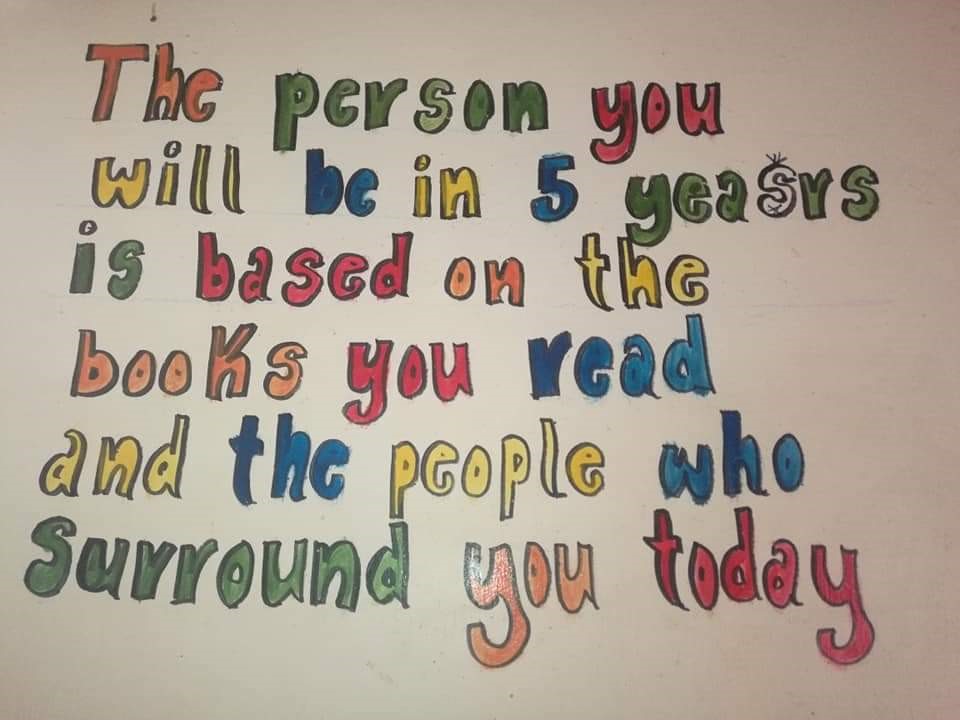 The person you
will be in 5 yeasrs
is based on the
books you read
and the people who
Surround you today